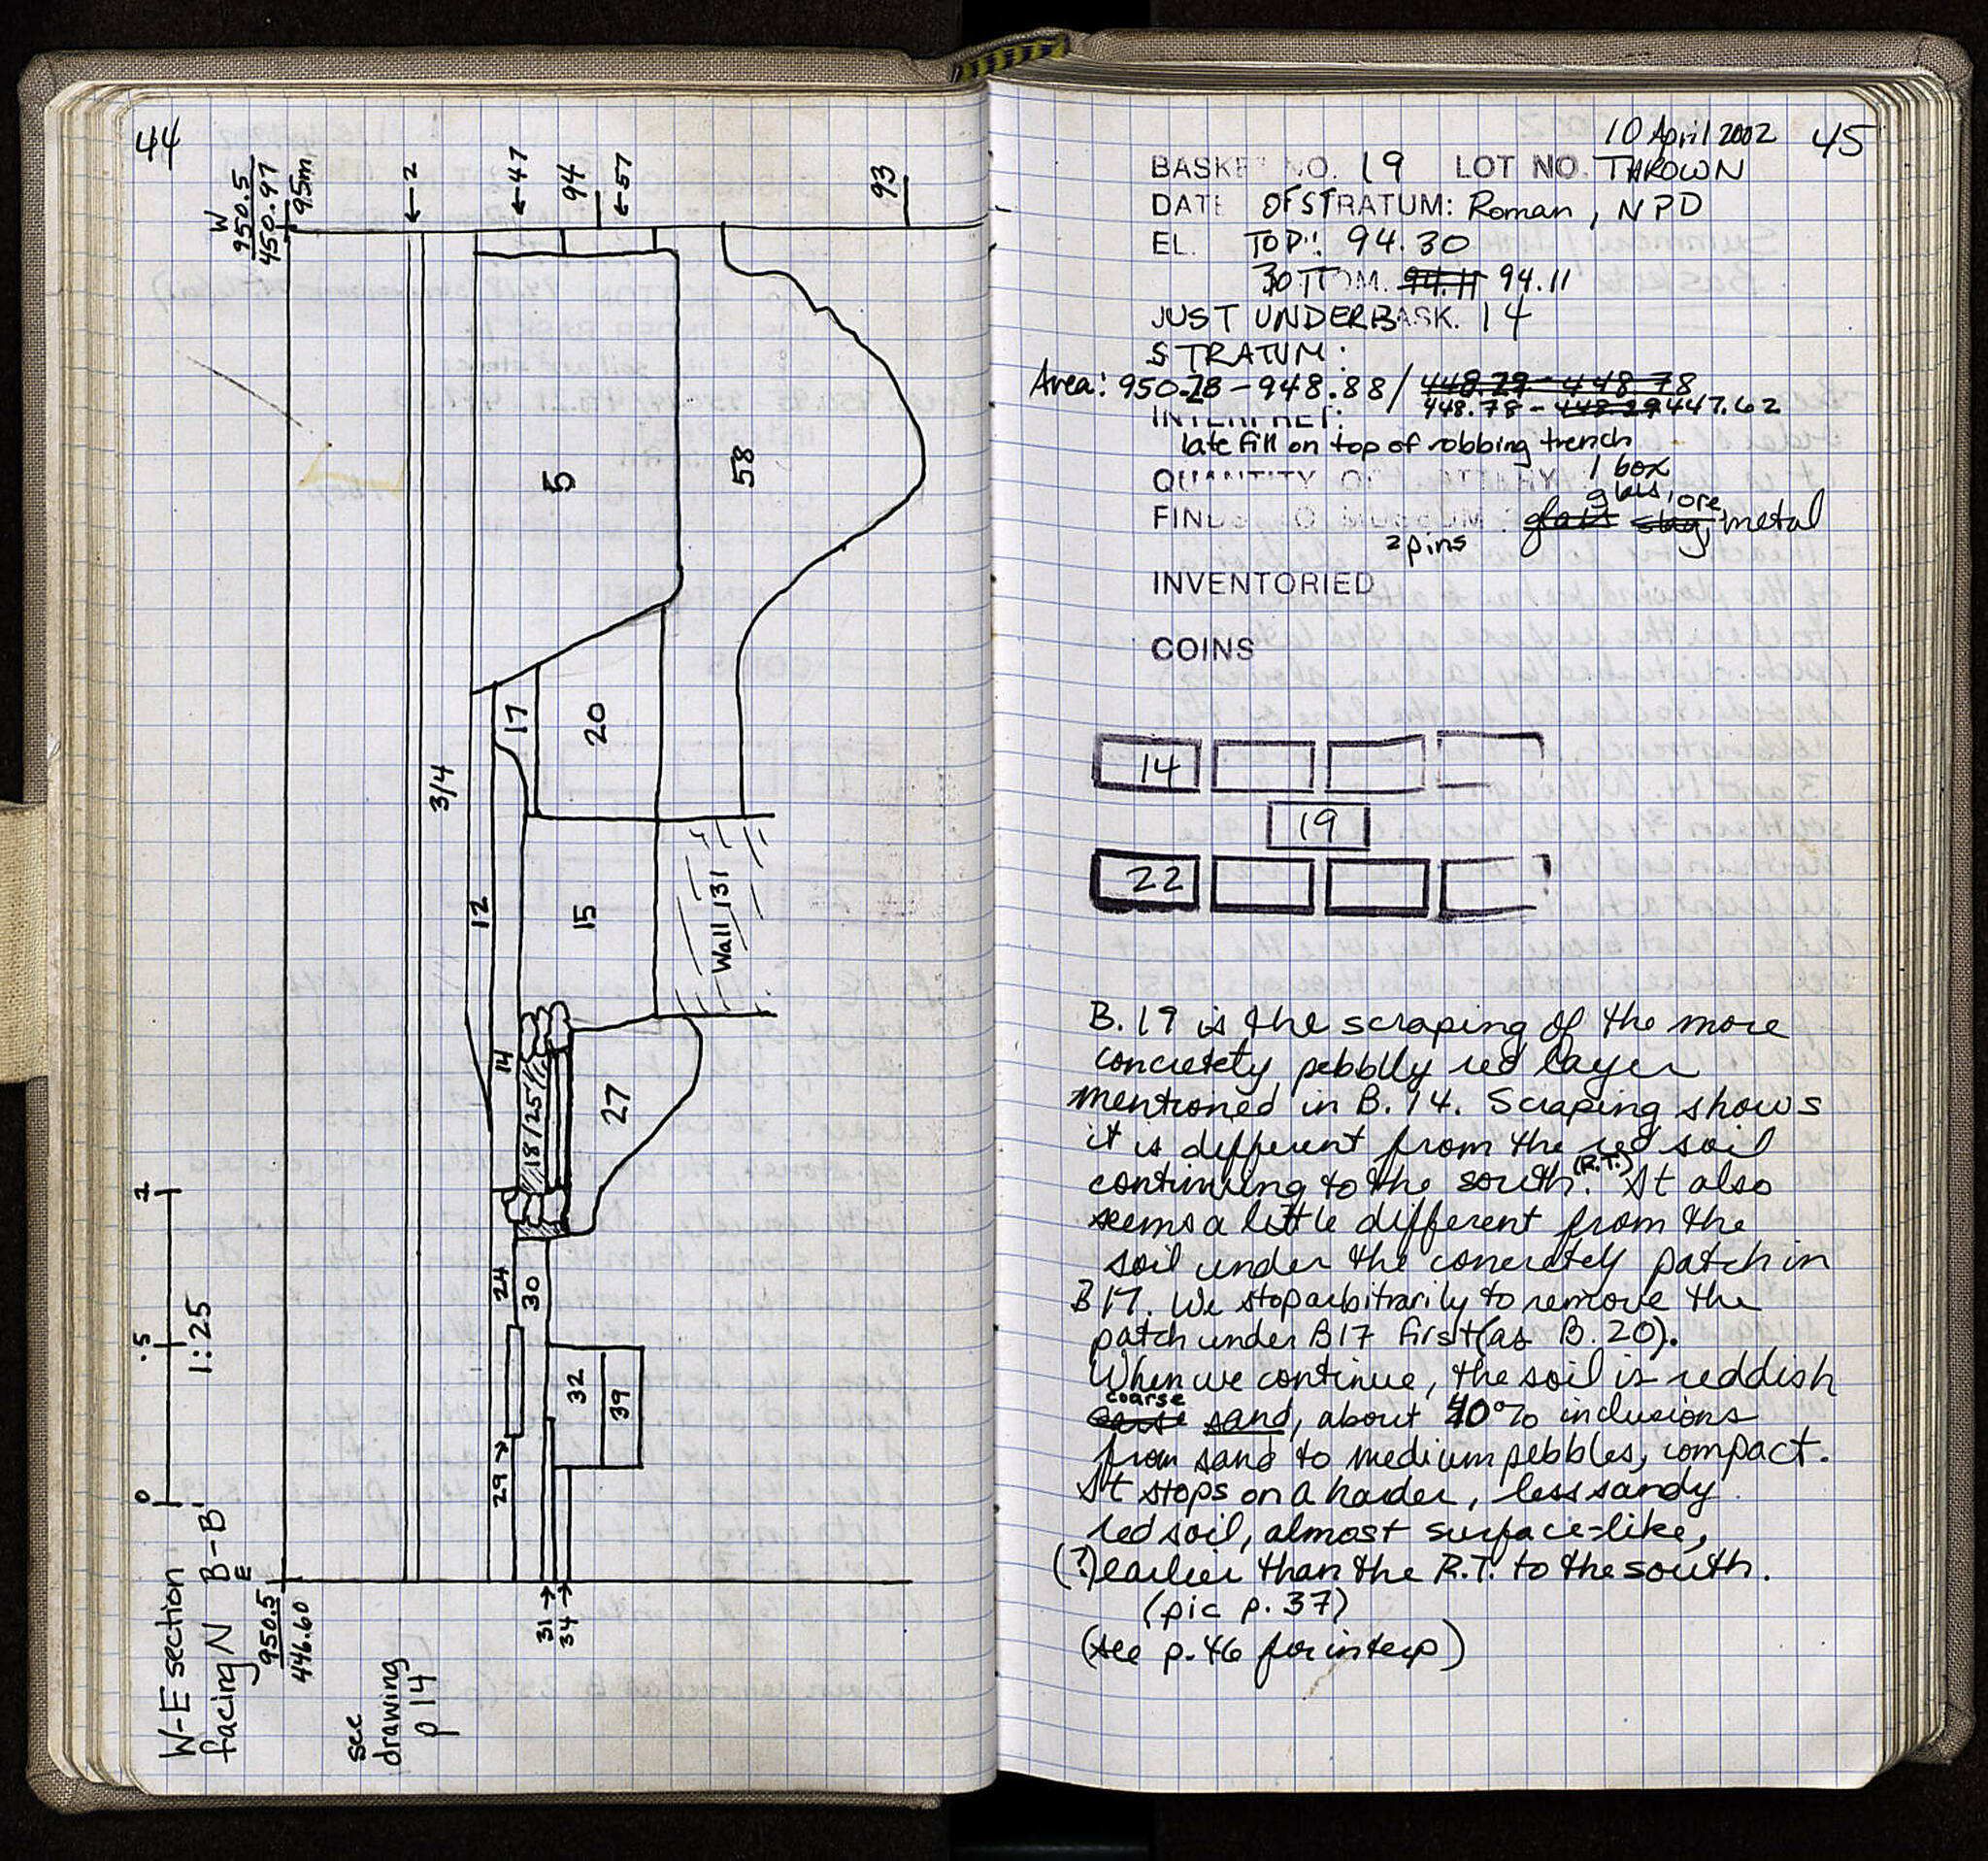 44
W
950.5
450.97
95m
←2
←47
94
←57
93
5
58
3/4
17
20
12
15
Wall 131
14
18/25
27
24
30
29→
32
39
31→
34→
0
.5
1
1:25
W-E section
facing N B-B'
E
950.5
446.60
see
drawing
p 14
10 April 2002 45
BASKET NO. 19 LOT NO. THROWN
DATE OF STRATUM: Roman, NPD
EL. TOP: 94.30
BOTTOM. 94.11 94.11
JUST UNDER BASK. 14
STRATUM:
Area: 950.28 - 948.88 / 448.29 - 448.78
448.78 - 448.29 447.62
INTERPRET:
late fill on top of robbing trench
QUANTITY OF POTTERY 1 box
glass, ore,
FINDS TO MUSEUM: glass slag, metal
2 pins
INVENTORIED
COINS
14
19
22
B. 19 is the scraping of the more
concretety pebblly red layer
mentioned in B. 14. Scraping shows
it is different from the red soil
continuing to the south. (R.T.) It also
seems a little different from the
soil under the concretety patch in
B17. We stop arbitrarily to remove the
patch under B17 first (as B. 20).
When we continue, the soil is reddish
coarse
sand, about 40% inclusions
from sand to medium pebbles, compact.
It stops on a harder, less sandy
red soil, almost surface-like,
(?) earlier than the R.T. to the south.
(pic p. 37)
(see p. 46 for interp)